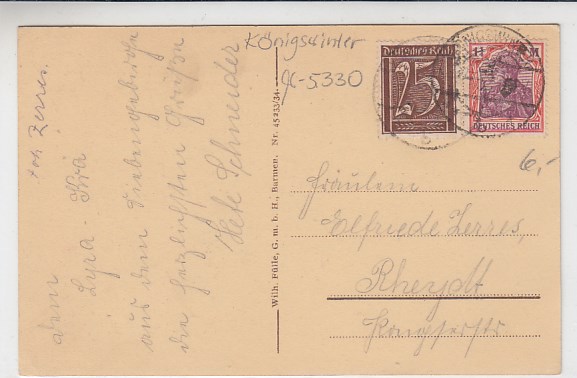 Königswinter
gk-5330
Deutsches Reich
25
1¼ M
DEUTSCHES REICH
6,-
Dem
Lyra - Krä
aus dem Siebengebirge
die herzlichsten Grüße
Schneider
Zerres.
Wilh. Fülle, G. m. b. H., Barmen. Nr. 45233/34.
Fräulein
Elfriede Zerres,
Rheydt